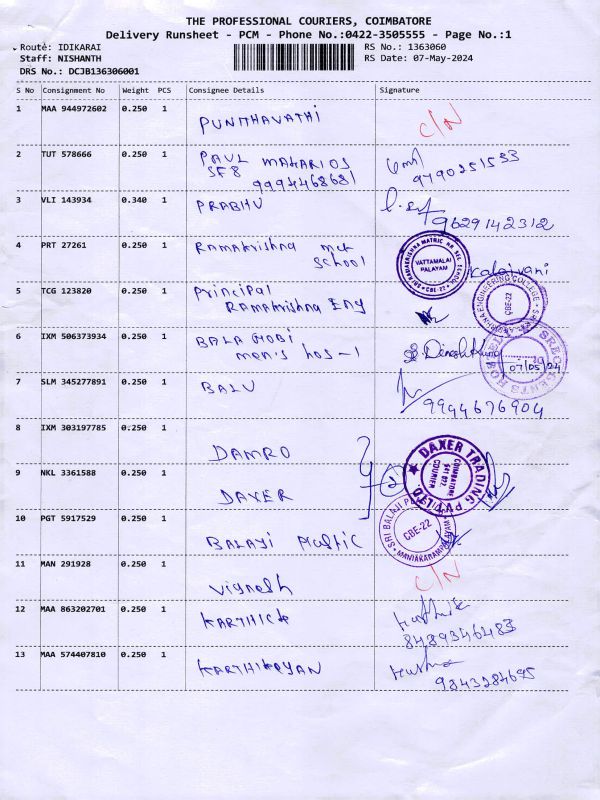 THE PROFESSIONAL COURIERS, COIMBATORE
Delivery Runsheet - PCM - Phone No.:0422-3505555 - Page No.:1
Route: IDIKARAI
Staff: NISHANTH
DRS No.: DCJB136306001
RS No.: 1363060
RS Date: 07-May-2024
S No Consignment No Weight PCS Consignee Details Signature
1 MAA 944972602 0.250 1 PUNITHAVATHI C/N
2 TUT 578666 0.250 1 PAUL MAHARIOS
SF8
9994468681
9790251533
3 VLI 143934 0.340 1 PRABHU
9629142312
4 PRT 27261 0.250 1 Ramakrishna mat
School
Kalaivani
SRI RAMAKRISHNA MATRIC HR. SEC. SCHOOL
VATTAMALAI
PALAYAM
CBE-22
5 TCG 123820 0.250 1 Principal
Ramakrishna Eng
ENGINEERING COLLEGE
CBE-22
6 IXM 506373934 0.250 1 BALA GOBI
men's hos-1
Dinesh Kumar
SREC
07/05/24
7 SLM 345277891 0.250 1 BALU
9944676904
8 IXM 303197785 0.250 1 DAMRO
9 NKL 3361588 0.250 1 DAXER
2
DAXER TRADING PVT LTD
COIMBATORE
10 PGT 5917529 0.250 1 BALAJI Plastic
SRI BALAJI
CBE-22
11 MAN 291928 0.250 1 Vignesh C/N
12 MAA 863202701 0.250 1 KARTHICK
8489346483
13 MAA 574407810 0.250 1 KARTHIKEYAN
9843284695